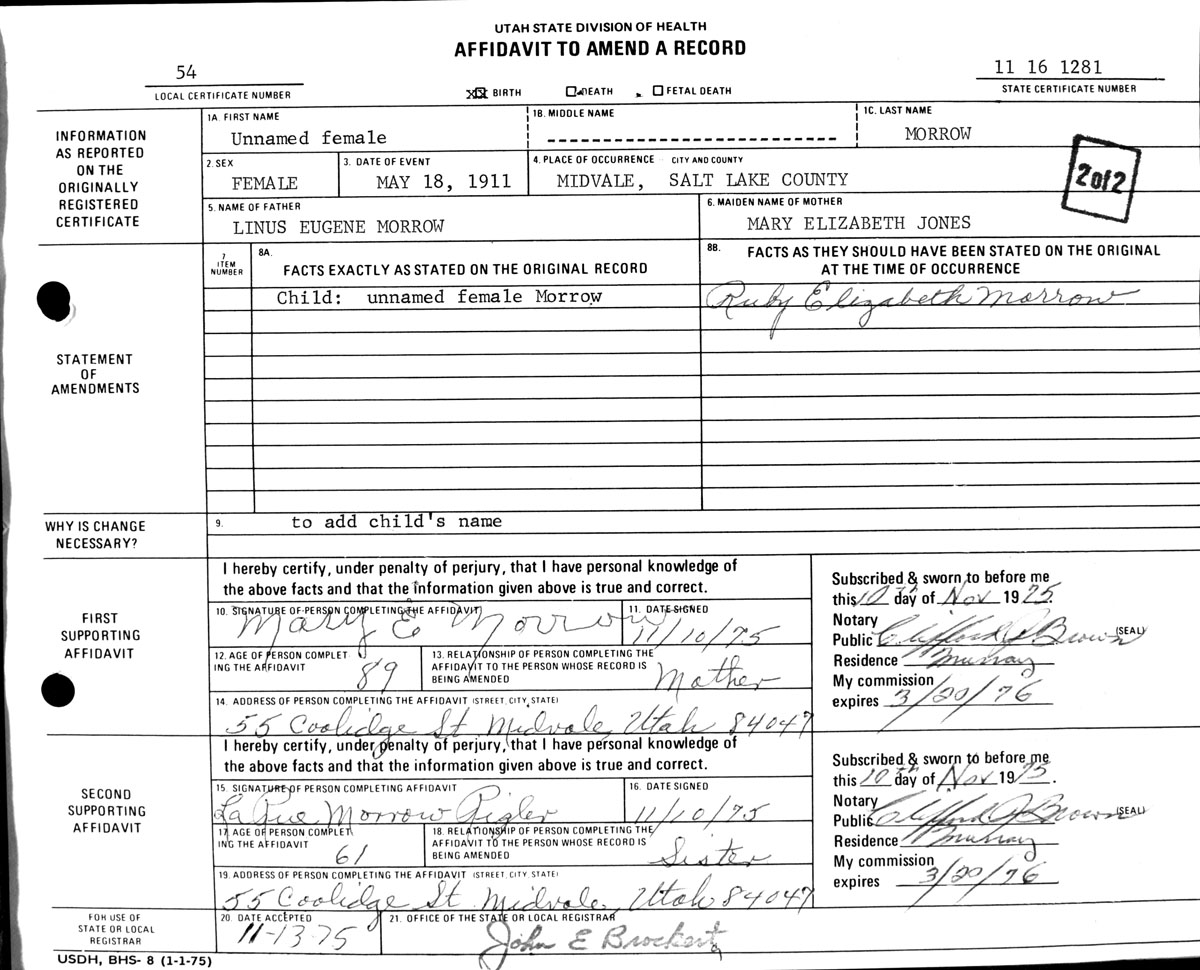 UTAH STATE DIVISION OF HEALTH
AFFIDAVIT TO AMEND A RECORD
54
LOCAL CERTIFICATE NUMBER
BIRTH DEATH FETAL DEATH
11 16 1281
STATE CERTIFICATE NUMBER
INFORMATION
AS REPORTED
ON THE
ORIGINALLY
REGISTERED
CERTIFICATE
1A. FIRST NAME
Unnamed female
1B. MIDDLE NAME
1C. LAST NAME
MORROW
2. SEX
FEMALE
3. DATE OF EVENT
MAY 18, 1911
4. PLACE OF OCCURRENCE - CITY AND COUNTY
MIDVALE, SALT LAKE COUNTY
2 of 2
5. NAME OF FATHER
LINUS EUGENE MORROW
6. MAIDEN NAME OF MOTHER
MARY ELIZABETH JONES
STATEMENT
OF
AMENDMENTS
7
ITEM
NUMBER
8A.
FACTS EXACTLY AS STATED ON THE ORIGINAL RECORD
8B. FACTS AS THEY SHOULD HAVE BEEN STATED ON THE ORIGINAL
AT THE TIME OF OCCURRENCE
Child: unnamed female Morrow
Ruby Elizabeth Morrow
WHY IS CHANGE
NECESSARY?
9. to add child's name
FIRST
SUPPORTING
AFFIDAVIT
I hereby certify, under penalty of perjury, that I have personal knowledge of
the above facts and that the information given above is true and correct.
10. SIGNATURE OF PERSON COMPLETING THE AFFIDAVIT
Mary E Morrow
11. DATE SIGNED
11/10/75
12. AGE OF PERSON COMPLET
ING THE AFFIDAVIT
89
13. RELATIONSHIP OF PERSON COMPLETING THE
AFFIDAVIT TO THE PERSON WHOSE RECORD IS
BEING AMENDED
Mother
14. ADDRESS OF PERSON COMPLETING THE AFFIDAVIT (STREET, CITY, STATE)
55 Coolidge St. Midvale, Utah 84047
Subscribed & sworn to before me
this 10th day of Nov 1975.
Notary
Public Clifford Brown (SEAL)
Residence Murray
My commission
expires 3/20/76
SECOND
SUPPORTING
AFFIDAVIT
I hereby certify, under penalty of perjury, that I have personal knowledge of
the above facts and that the information given above is true and correct.
15. SIGNATURE OF PERSON COMPLETING AFFIDAVIT
LaRue Morrow Rigler
16. DATE SIGNED
11/10/75
17. AGE OF PERSON COMPLET
ING THE AFFIDAVIT
61
18. RELATIONSHIP OF PERSON COMPLETING THE
AFFIDAVIT TO THE PERSON WHOSE RECORD IS
BEING AMENDED
Sister
19. ADDRESS OF PERSON COMPLETING THE AFFIDAVIT (STREET, CITY, STATE)
55 Coolidge St. Midvale, Utah 84047
Subscribed & sworn to before me
this 10th day of Nov 1975.
Notary
Public Clifford Brown (SEAL)
Residence Murray
My commission
expires 3/20/76
FOR USE OF
STATE OR LOCAL
REGISTRAR
20. DATE ACCEPTED
11-13-75
21. OFFICE OF THE STATE OR LOCAL REGISTRAR
John E Brockert
USDH, BHS- 8 (1-1-75)